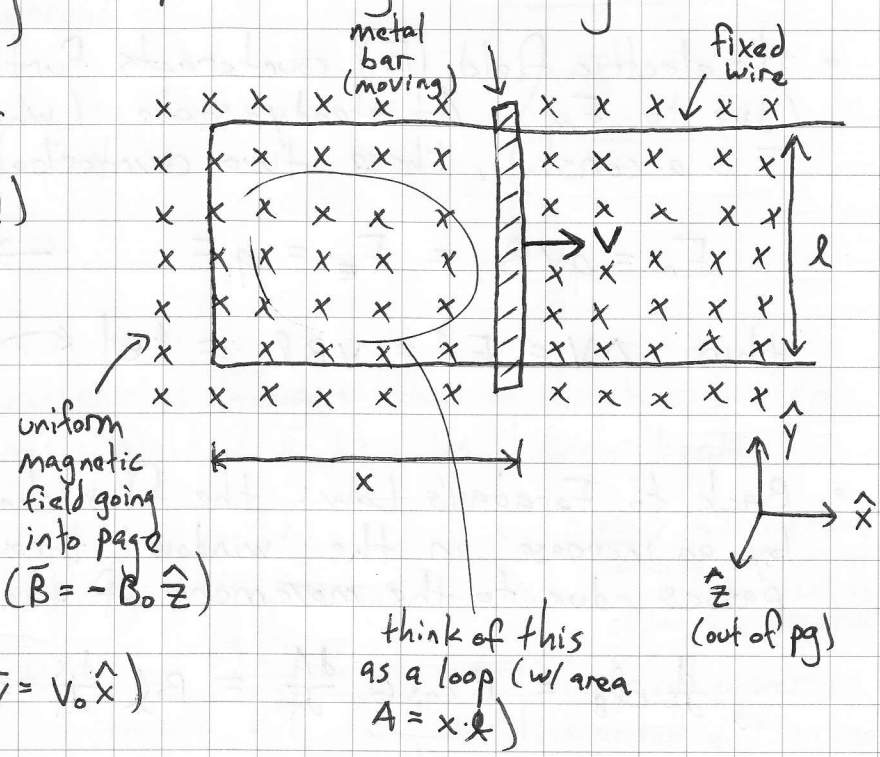 metal
bar
(moving)
fixed
wire
V
l
x
uniform
magnetic
field going
into page
(B̄ = - B₀ ẑ)
= V₀ x̂)
ŷ
x̂
ẑ
(out of pg)
think of this
as a loop (w/ area
A = x·l)